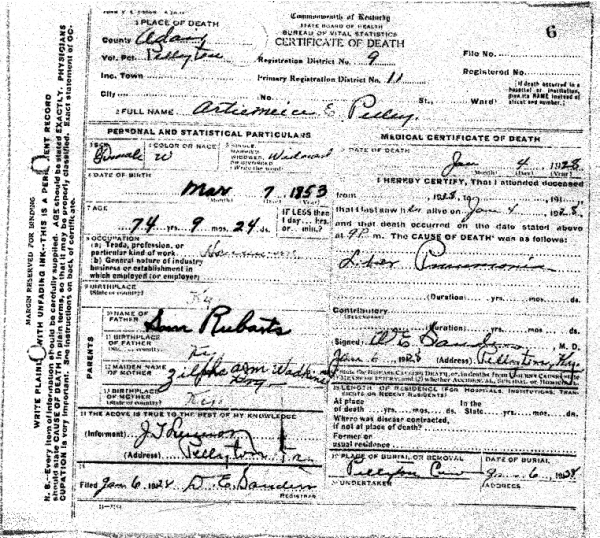 Commonwealth of Kentucky
STATE BOARD OF HEALTH
BUREAU OF VITAL STATISTICS
CERTIFICATE OF DEATH
6
1 PLACE OF DEATH
County Adair
Vot. Pct. Pellyton
Inc. Town
City
Registration District No. 9
Primary Registration District No. 11
No. St., Ward
File No.
Registered No.
(If death occurred in a hospital or institution, give its NAME instead of street and number.)
2 FULL NAME Artiemeica E. Pelley
PERSONAL AND STATISTICAL PARTICULARS
3 SEX Female
4 COLOR OR RACE W
5 SINGLE, MARRIED, WIDOWED, OR DIVORCED (Write the word) Widowed
6 DATE OF BIRTH
Mar 7 1853
(Month) (Day) (Year)
7 AGE
74 yrs. 9 mos. 24 ds.
IF LESS than 1 day... hrs. or... min.?
8 OCCUPATION
(a) Trade, profession, or particular kind of work
(b) General nature of industry business or establishment in which employed (or employer)
9 BIRTHPLACE
(State or country) Ky
PARENTS
10 NAME OF FATHER Sam Rubarts
11 BIRTHPLACE OF FATHER
Ky
12 MAIDEN NAME OF MOTHER Zilpha Ann
13 BIRTHPLACE OF MOTHER
Ky
14 THE ABOVE IS TRUE TO THE BEST OF MY KNOWLEDGE
(Informant) J T
(Address) Pellyton Ky
Filed Jan 6 1928 D. E. Sanders
REGISTRAR
MEDICAL CERTIFICATE OF DEATH
DATE OF DEATH
Jan 4 1928
(Month) (Day) (Year)
I HEREBY CERTIFY, That I attended deceased
from 1928, 191
that I last saw her alive on Jan 4 1928
and that death occurred on the date stated above
at m. The CAUSE OF DEATH* was as follows:
Pneumonia
(Duration) yrs. mos. ds.
Contributory
(Duration) yrs. mos. ds.
Signed Sanders M. D.
Jan 6 1928 (Address) Pellyton, Ky
LENGTH OF RESIDENCE (FOR HOSPITALS, INSTITUTIONS, TRANSIENTS OR RECENT RESIDENTS)
At place of death yrs. mos. ds. In the State yrs. mos. ds.
Where was disease contracted, if not at place of death?
Former or usual residence
PLACE OF BURIAL OR REMOVAL
Pellyton Cem
DATE OF BURIAL
Jan 6, 1928
UNDERTAKER
ADDRESS
MARGIN RESERVED FOR BINDING
WRITE PLAINLY WITH UNFADING INK--THIS IS A PERMANENT RECORD
N. B.--Every item of information should be carefully supplied. AGE should be stated EXACTLY. PHYSICIANS should state CAUSE OF DEATH in plain terms, so that it may be properly classified. Exact statement of OCCUPATION is very important. See instructions on back of certificate.